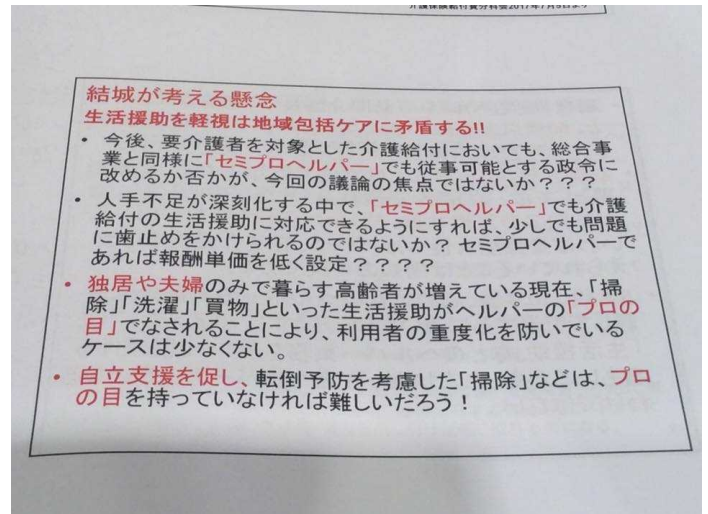 介護保険給付費分科会2017年7月5日より
結城が考える懸念
生活援助を軽視は地域包括ケアに矛盾する!!
・ 今後、要介護者を対象とした介護給付においても、総合事
業と同様に「セミプロヘルパー」でも従事可能とする政令に
改めるか否かが、今回の議論の焦点ではないか？？？
・ 人手不足が深刻化する中で、「セミプロヘルパー」でも介護
給付の生活援助に対応できるようにすれば、少しでも問題
に歯止めをかけられるのではないか？ セミプロヘルパーで
あれば報酬単価を低く設定？？？？
・ 独居や夫婦のみで暮らす高齢者が増えている現在、「掃
除」「洗濯」「買物」といった生活援助がヘルパーの「プロの
目」でなされることにより、利用者の重度化を防いでいる
ケースは少なくない。
・ 自立支援を促し、転倒予防を考慮した「掃除」などは、プロ
の目を持っていなければ難しいだろう！